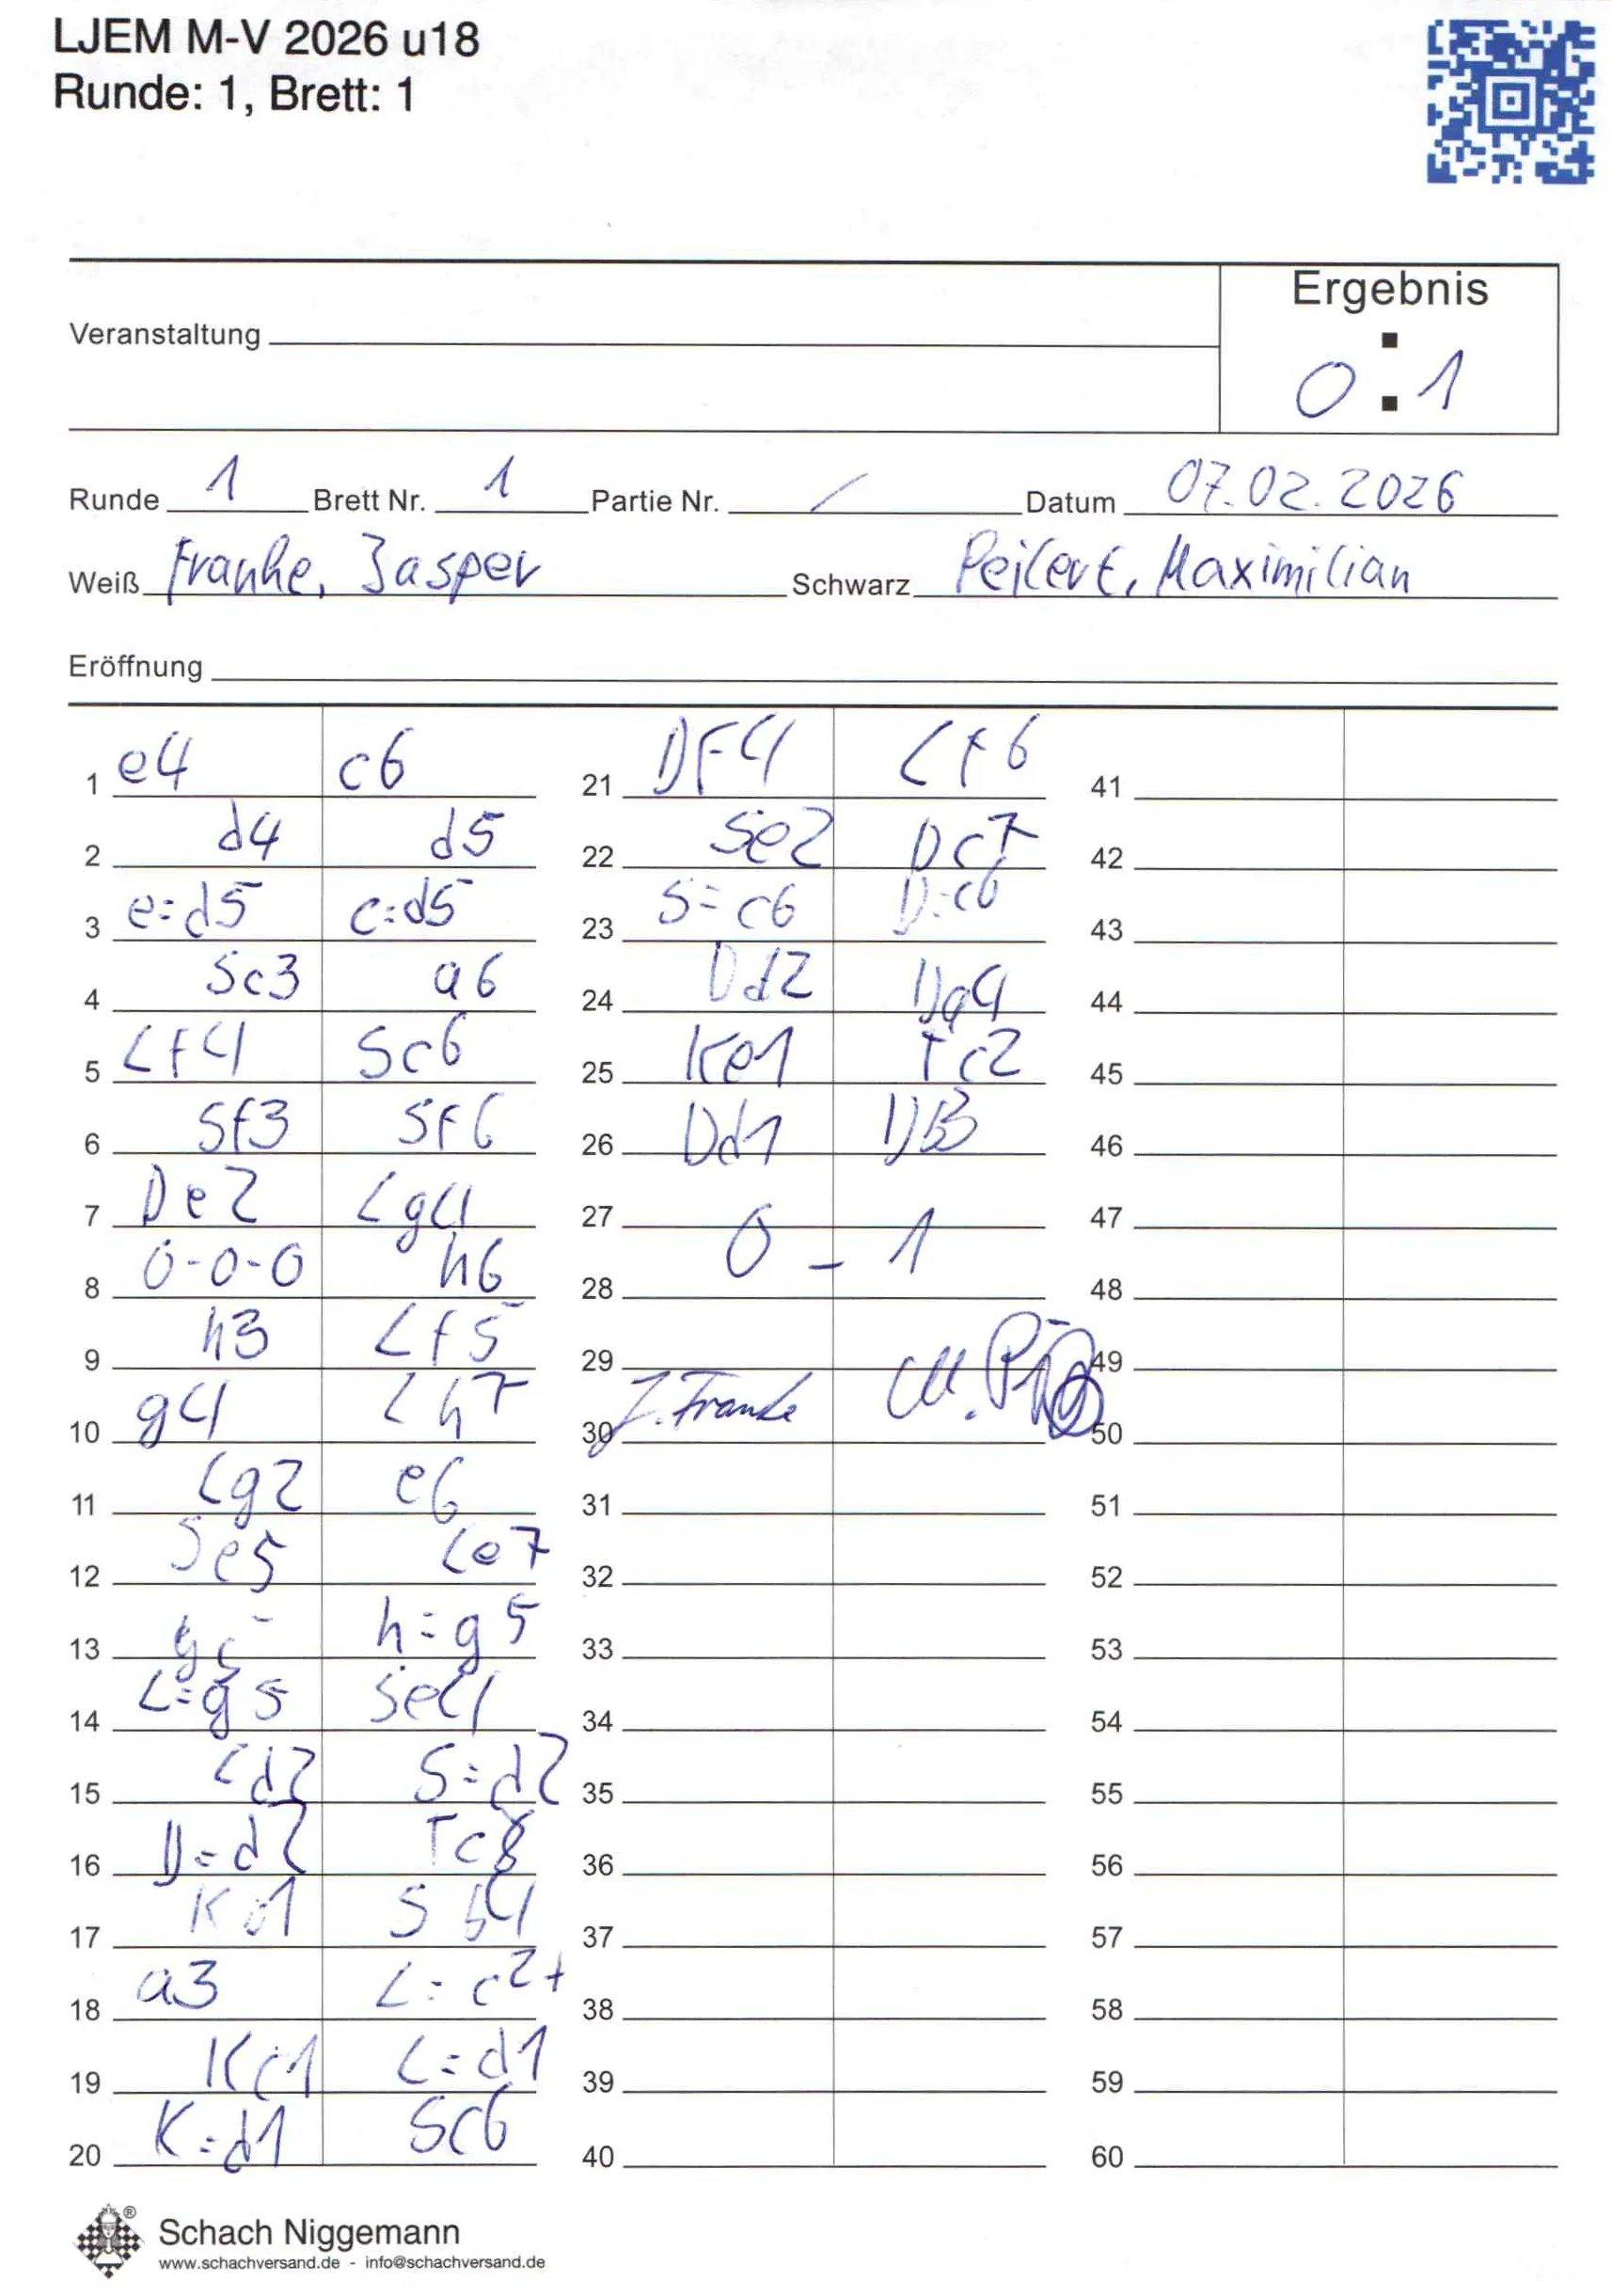 LJEM M-V 2026 u18
Runde: 1, Brett: 1
Ergebnis
Veranstaltung
0 : 1
Runde 1 Brett Nr. 1 Partie Nr. / Datum 07.02.2026
Weiß Franke, Jasper Schwarz Peilert, Maximilian
Eröffnung
1 e4 c6 21 Df4 Lf6 41
2 d4 d5 22 Se2 Dc7 42
3 e=d5 c=d5 23 S=c6 D=c6 43
4 Sc3 a6 24 Dd2 Da4 44
5 Lf4 Sc6 25 Ke1 Tc2 45
6 Sf3 Sf6 26 Dd1 Db3 46
7 De2 Lg4 27 47
0 - 1
8 0-0-0 h6 28 48
9 h3 Lf5 29 49
10 g4 Lh7 30 J. Franke 50
11 Lg2 e6 31 51
12 Se5 Le7 32 52
13 g5 h=g5 33 53
14 L=g5 Se4 34 54
15 Ld2 S=d2 35 55
16 D=d2 Tc8 36 56
17 Kb1 Sb4 37 57
18 a3 L=c2+ 38 58
19 Kc1 L=d1 39 59
20 K=d1 Sc6 40 60
®
Schach Niggemann
www.schachversand.de - info@schachversand.de